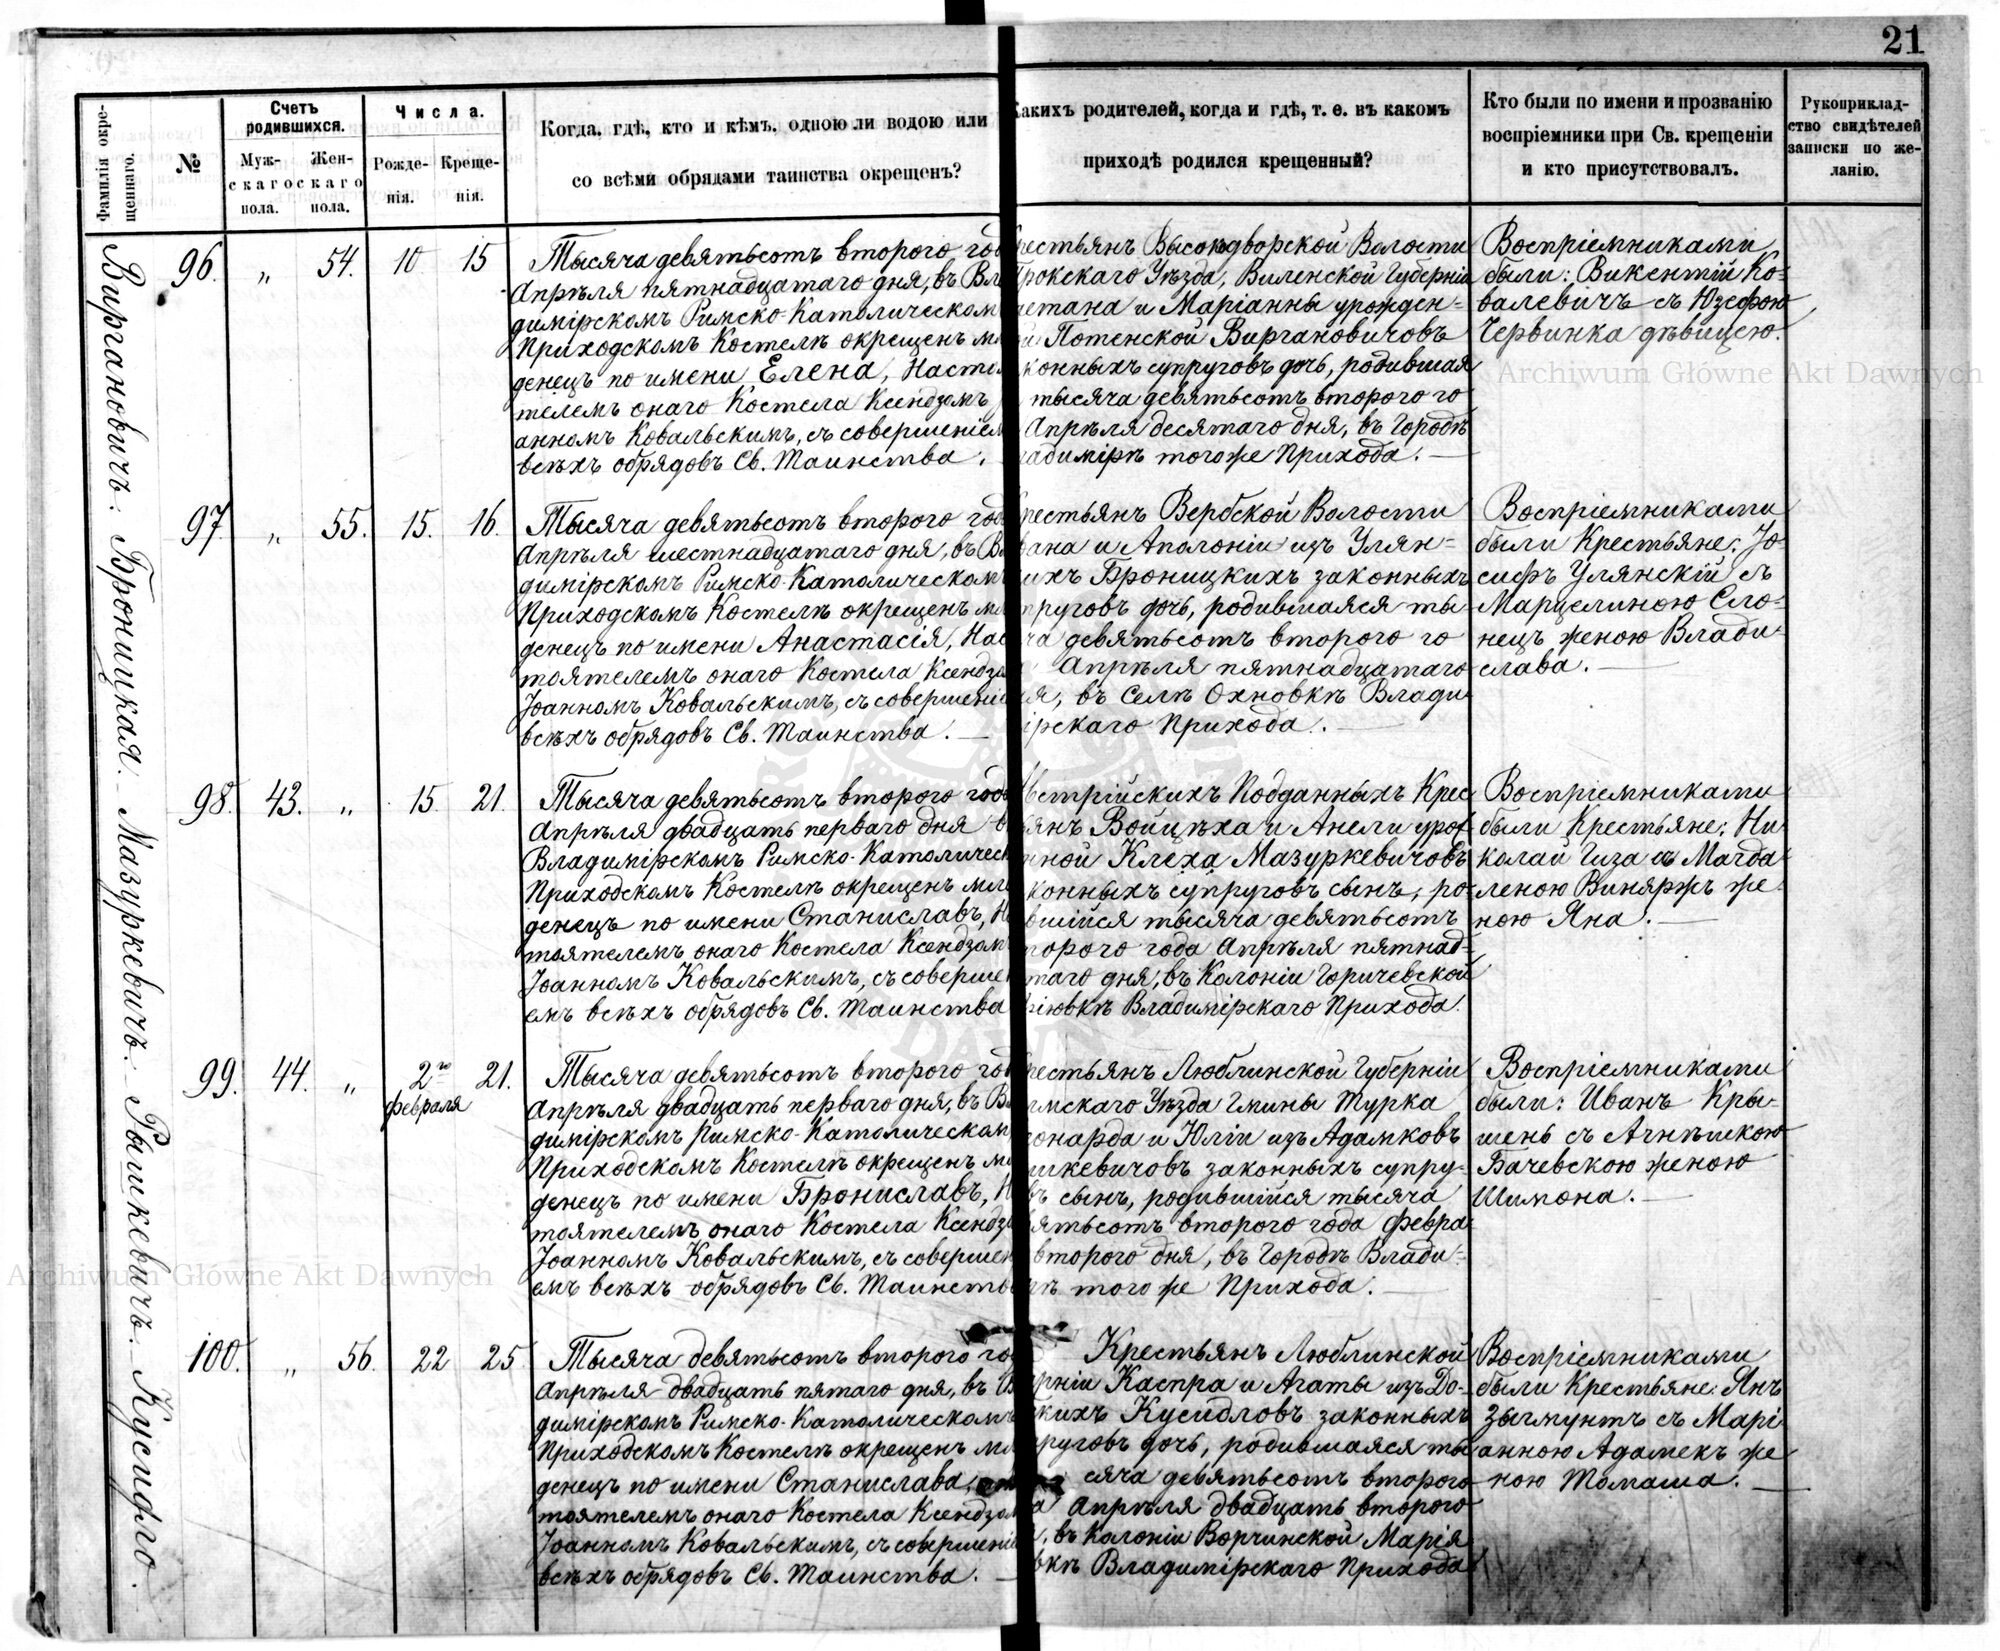 21
Фамилія окрещеннаго.
№
Счетъ родившихся.
Мужскаго пола.
Женскаго пола.
Числа.
Рожденія.
Крещенія.
Когда, гдѣ, кто и кѣмъ, одною ли водою или
со всѣми обрядами таинства окрещенъ?
Какихъ родителей, когда и гдѣ, т. е. въ какомъ
приходѣ родился крещенный?
Кто были по имени и прозванію
воспріемники при Св. крещеніи
и кто присутствовалъ.
Рукоприклад-
ство свидѣтелей
записки по же-
ланію.
Виргановичъ. Броницкая. Мазуркевичъ. Рышкевичъ. Кусидло.
96. " 54. 10. 15
Тысяча девятьсотъ второго го
Апрѣля пятнадцатаго дня, въ Вла
димірскомъ Римско-Католическом
Приходскомъ Костелѣ окрещенъ мл
денецъ по имени Елена, Насто
телемъ онаго Костела Ксендзомъ
анномъ Ковальскимъ, съ совершеніем
всѣхъ обрядовъ Св. Таинства.
рестьянъ Высокодворской Волости
Трокскаго Уѣзда, Виленской Губерніи
етана и Маріанны урожден-
й Потенской Виргановичовъ
конныхъ супруговъ дочь, родившая
тысяча девятьсотъ второго го
Апрѣля десятаго дня, въ Городѣ
адимірѣ того же Прихода.
Воспріемниками
были: Викентій Ко-
валевичъ съ Юзефою
Червинка дѣвицею.
97. " 55. 15. 16.
Тысяча девятьсотъ второго год
Апрѣля шестнадцатаго дня, въ В
димірскомъ Римско-Католическом
Приходскомъ Костелѣ окрещенъ мл
денецъ по имени Анастасія, Нас
тоятелемъ онаго Костела Ксендзо
Іоанномъ Ковальскимъ, съ совершеніе
всѣхъ обрядовъ Св. Таинства.
рестьянъ Вербской Волости
вана и Аполоніи изъ Улян-
ихъ Броницкихъ законныхъ
пруговъ дочь, родившаяся ты-
ча девятьсотъ второго го
Апрѣля пятнадцатаго
ня, въ Селѣ Охновкѣ Влади
ірскаго Прихода.
Воспріемниками
были Крестьяне: Іо-
сифъ Улянскій съ
Марцелиною Сло-
нецъ женою Влади-
слава.
98. 43. " 15. 21.
Тысяча девятьсотъ второго года
Апрѣля двадцать перваго дня в
Владимірскомъ Римско-Католическ
Приходскомъ Костелѣ окрещенъ мла
денецъ по имени Станиславъ, Н
тоятелемъ онаго Костела Ксендзом
Іоанномъ Ковальскимъ, съ соверше
емъ всѣхъ обрядовъ Св. Таинства
встрійскихъ Подданныхъ Крес
янъ Войцѣха и Анели урож
нной Клеха Мазуркевичовъ
конныхъ супруговъ сынъ, ро-
вшійся тысяча девятьсотъ
торого года Апрѣля пятнад-
таго дня, въ Колоніи Горичевской
ріювкѣ Владимірскаго Прихода.
Воспріемниками
были Крестьяне: Ни-
колай Гиза съ Магда-
леною Виняржъ же-
ною Яна.
99. 44. " 2го февраля 21.
Тысяча девятьсотъ второго год
Апрѣля двадцать перваго дня, въ В
димірскомъ Римско-Католическом
Приходскомъ Костелѣ окрещенъ мл
денецъ по имени Брониславъ, Н
тоятелемъ онаго Костела Ксендзо
Іоанномъ Ковальскимъ, съ соверше
емъ всѣхъ обрядовъ Св. Таинства
рестьянъ Люблинской Губерніи
лмскаго Уѣзда Гмины Турка
онарда и Юліи изъ Адамковъ
шкевичовъ законныхъ супру-
въ сынъ, родившійся тысяча
вятьсотъ второго года февра-
второго дня, въ Городѣ Влади-
рѣ того же Прихода.
Воспріемниками
были: Иванъ Кры-
шень съ Агнѣшкою
Бачевскою женою
Шимона.
100. " 56. 22 25
Тысяча девятьсотъ второго го
Апрѣля двадцать пятаго дня, въ В
димірскомъ Римско-Католическомъ
Приходскомъ Костелѣ окрещенъ мл
денецъ по имени Станислава,
тоятелемъ онаго Костела Ксендзом
Іоанномъ Ковальскимъ, съ совершені
всѣхъ обрядовъ Св. Таинства.
Крестьянъ Люблинской
ерніи Каспра и Агаты изъ До-
кихъ Кусидловъ законныхъ
пруговъ дочь, родившаяся ты
сяча девятьсотъ второго
а Апрѣля двадцать второго
, въ Колоніи Ворчинской Марія
вкѣ Владимірскаго Прихода
Воспріемниками
были Крестьяне: Янъ
Зыгмунтъ съ Марі
анною Адамекъ же
ною Томаша.
Archiwum Główne Akt Dawnych
Archiwum Główne Akt Dawnych